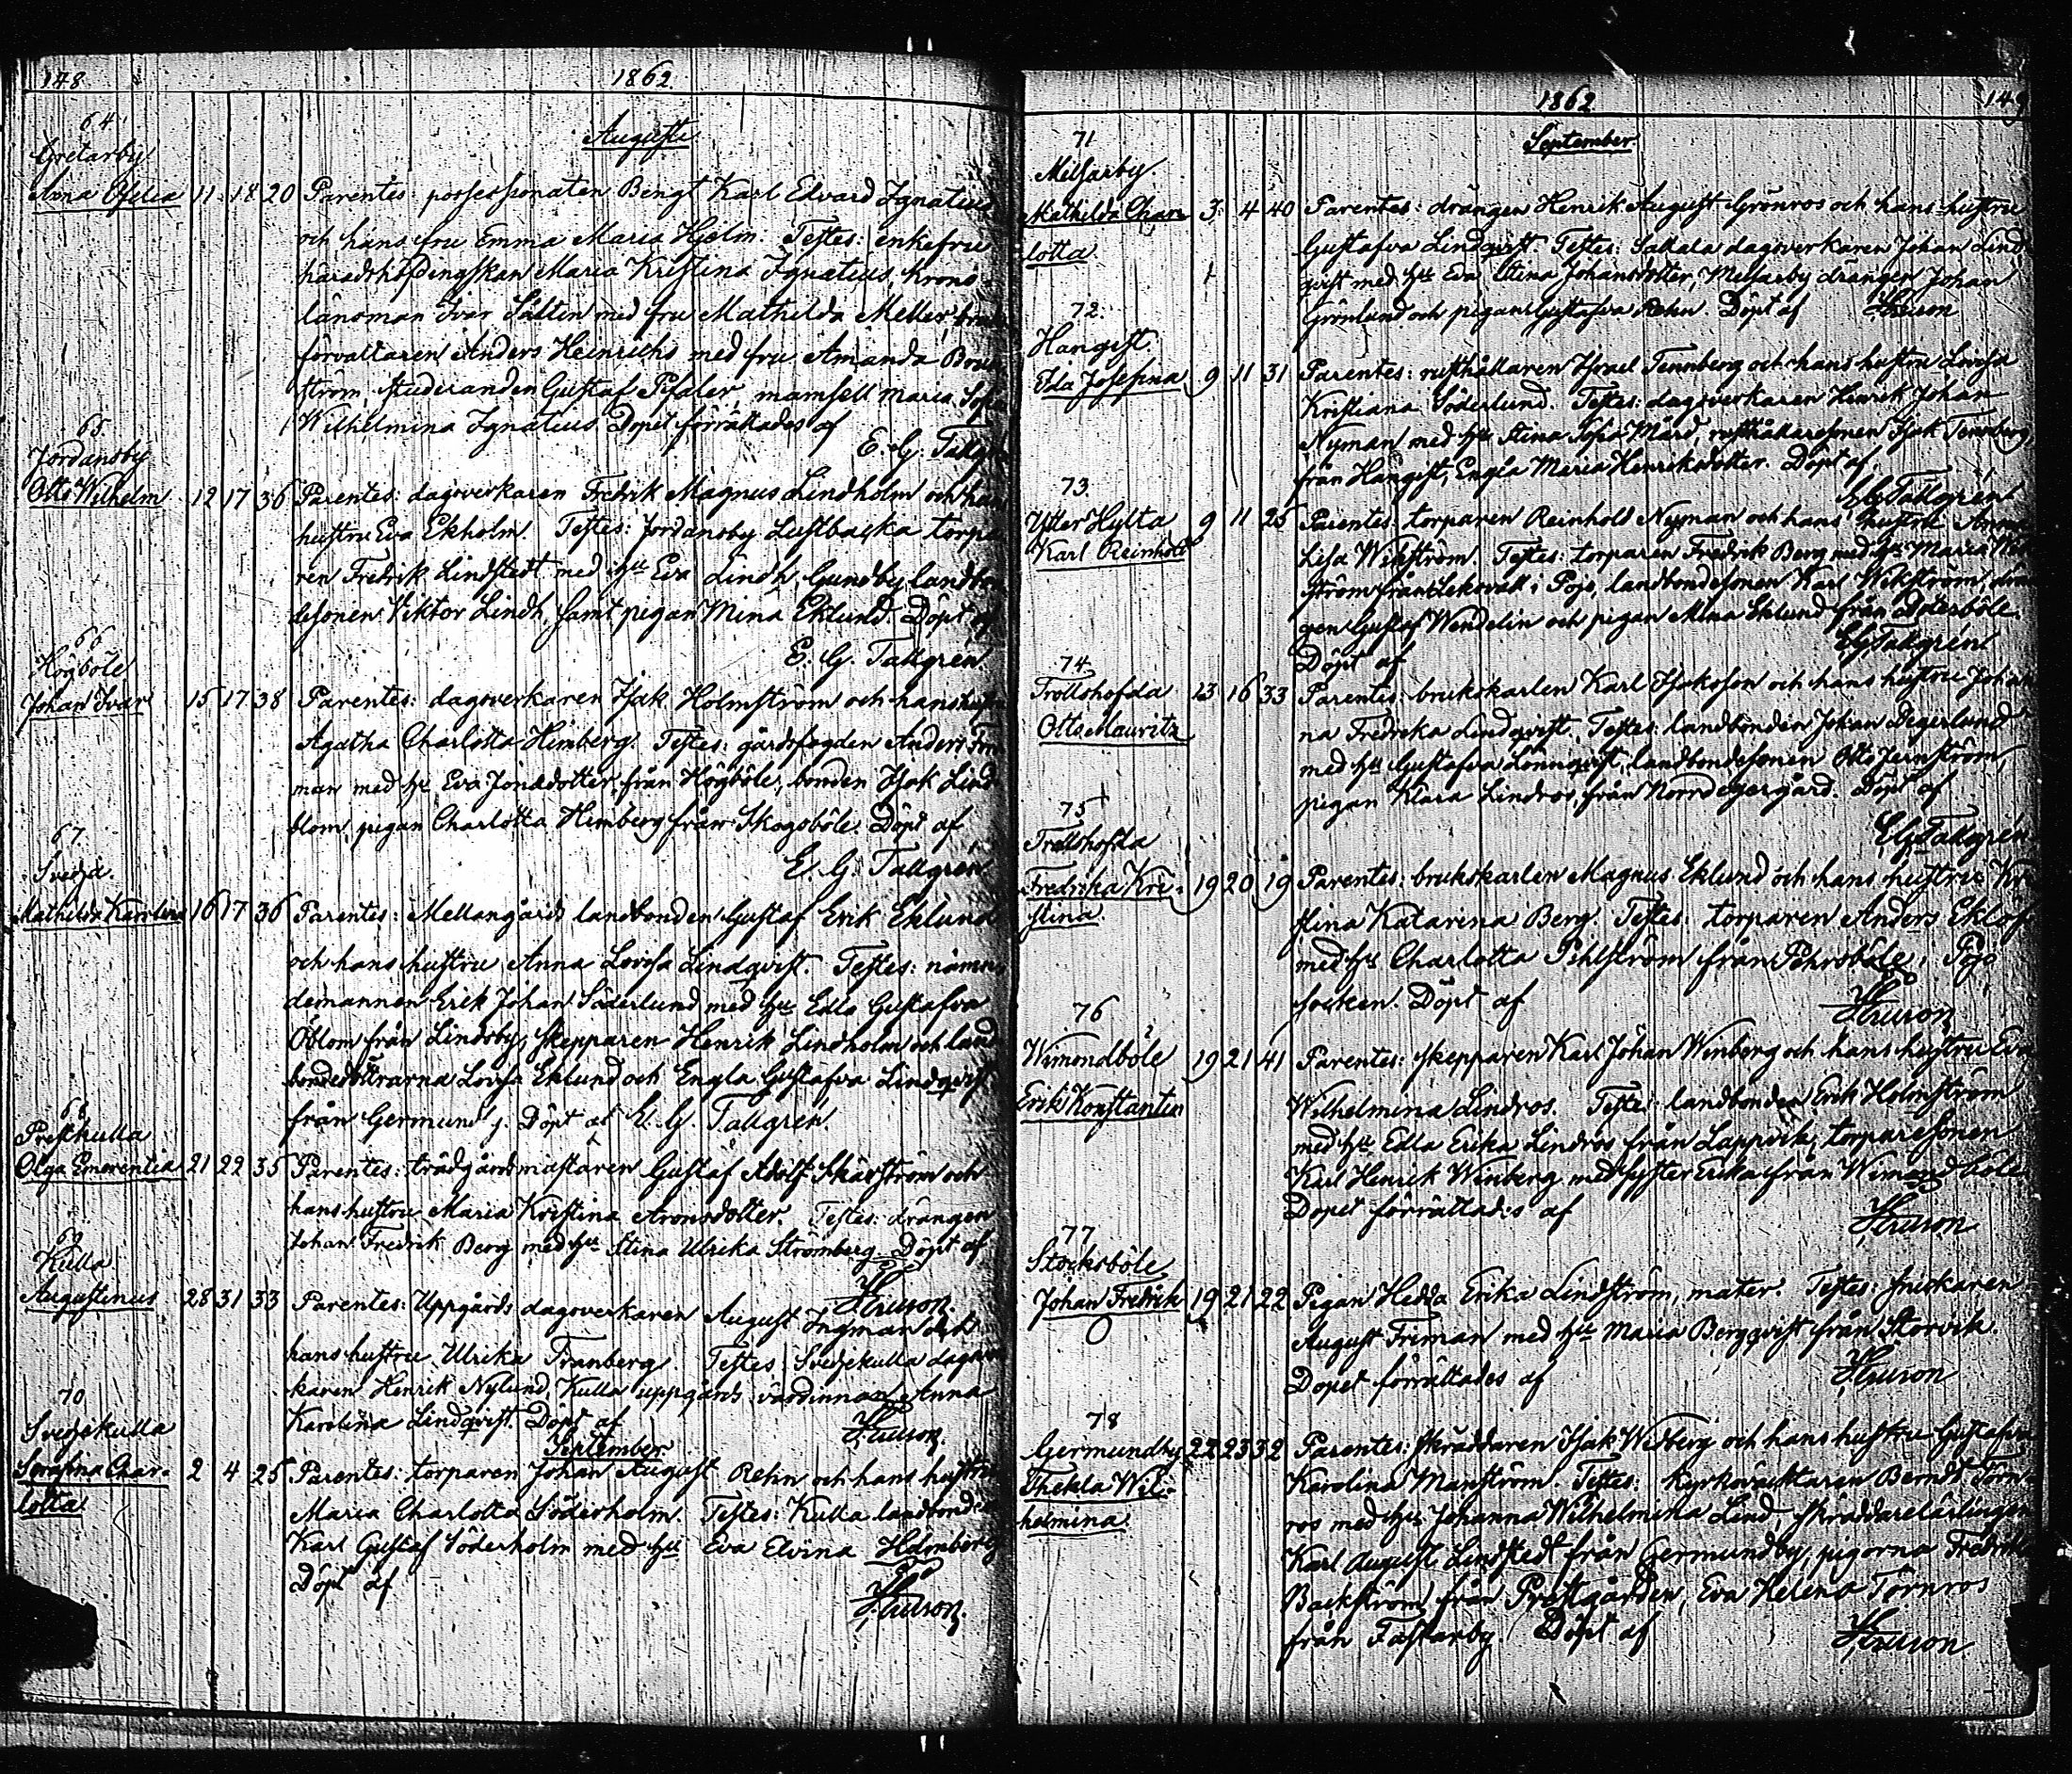 148
1862
Augusti
64
Gretarby
Anna Ofelia 11 18 20 Parentes: possessionaten Bengt Karl Edvard Ignatius
och hans fru Emma Maria Hjelm. Testes: enkefru
häradshöfdingskan Maria Kristina Ignatius, krono
länsman Ivar Sältin med fru Mathilda Meller,
förvaltaren Anders Heinrichs med fru Amanda
ström, studeranden Gustaf Pfaler, mamsell Maria Sofia
Wilhelmina Ignatius Dopet förrättades af
E. G. Tallgren
65.
Jordansby
Otto Wilhelm 12 17 36 Parentes: dagsverkaren Fredrik Magnus Lindholm och hans
hustru Eva Ekholm. Testes: Jordansby Lustbacka torpa
ren Fredrik Lindstedt med hu Eva Lindh, Gundby landbon
desonen Viktor Lindh, samt pigan Mina Eklund. Döpt af
E. G. Tallgren.
66
Högböle
Johan Ivar 15 17 38 Parentes: dagsverkaren Isak Holmström och hans hustru
Agatha Charlotta Himberg. Testes: gårdsfogden Anders Fri
man med hu Eva Jonasdotter, från Högböle, bonden Isak Lind
blom, pigan Charlotta Himberg från Skogsböle. Döpt af
E. G. Tallgren.
67.
Svedja.
Mathilda Karolina 16 17 36 Parentes: Mellangårds landbonden Gustaf Erik Eklund
och hans hustru Anna Lovisa Lindqvist. Testes: nämn
demannen Erik Johan Söderlund med hu Edla Gustafva
Öblom från Lindsby, skepparen Henrik Lindholm och land
bondedöttrarna Lovisa Eklund och Engla Gustafva Lindqvist
från Germundj. Döpt af E. G. Tallgren.
68
Prestkulla
Olga Emerentia 21 22 35 Parentes: trädgårdsmästaren Gustaf Adolf Skärström och
hans hustru Maria Kristina Aronsdotter. Testes: drängen
Johan Fredrik Berg med hu Stina Ulrika Strömberg. Döpt af
69
Kulla
Augustinus 28 31 33 Parentes: Uppgårds dagsverkaren August Ingman och
hans hustru Ulrika Franberg. Testes: Svedjekulla dagsver
karen Henrik Nylund, Kulla uppgårds värdinnan Anna
Karolina Lindqvist. Döpt af
September
70
Svedjekulla
Serafina Char- 2 4 25 Parentes: torparen Johan August Rehn och hans hustru
lotta Maria Charlotta Söderholm. Testes: Kulla landbonden
Karl Gustaf Söderholm med hu Eva Elvina Holmberg
Döpt af
1862
149
September
71
Melsarby
Mathilda Char 3 4 40 Parentes: drängen Henrik August Grönros och hans hustru
lotta Gustafva Lindqvist. Testes: Sattala dagsverkaren Johan Lind
qvist med hu Eva Stina Johansdotter, Melsarby drängen Johan
Grönlund och pigan Gustafva Rehn. Döpt af
72.
Hangist
Ida Josefina 9 11 31 Parentes: rusthållaren Israel Tennberg och hans hustru Lovisa
Kristiana Söderlund. Testes: dagsverkaren Henrik Johan
Nyman med hu Stina Sofia Mård, rusthållaresonen Isak Tennberg
från Hangist, Engla Maria Henriksdotter. Döpt af
E G Tallgren
73.
Ytter Hylta 9 11 25 Parentes: torparen Reinhold Nyman och hans hustru Anna
Karl Reinhold Lisa Wikström. Testes: torparen Fredrik Berg med hu Maria Wik
ström från Lekovall i Pojo, landbondesonen Karl Wikström, drän
gen Gustaf Wendelin och pigan Mina Eklund från Dötersböle.
Döpt af E G Tallgren
74
Trollshofda 13 16 33 Parentes: brukskarlen Karl Isaksson och hans hustru Johan
Otto Mauritz na Fredrika Lindqvist. Testes: landbonden Johan Degerlund
med hu Gustafva Lönnqvist, landbondesonen Otto Jernström,
pigan Klara Lindros, från Norrdegergård. Döpt af
E G Tallgren
75
Trollshofda
Fredrika Kri- 19 20 19 Parentes: brukskarlen Magnus Eklund och hans hustru Kri
stina stina Katarina Berg. Testes: torparen Anders Eklöf
med hu Charlotta Pihlström från Pehrsböle i Pojo
socken. Döpt af
76
Wimondböle 19 21 41 Parentes: skepparen Karl Johan Winberg och hans hustru Eva
Erik Konstantin Wilhelmina Lindros. Testes: landbonden Erik Holmström
med hu Edla Erika Lindros från Lappvik, torparesonen
Karl Henrik Winberg med syster Erika från Wimondböle
Dopet förrättades af
77
Stocksböle
Johan Fredrik 19 21 22 Pigan Hedda Erika Lindström, mater. Testes: snickaren
August Friman med hu Maria Bergqvist från Storvik.
Dopet förrättades af
78
Germundby 22 23 32 Parentes: skräddaren Isak Widberg och hans hustru Gustafva
Thekla Wil- Karolina Manström. Testes: kyrkoväktaren Berndt Törn
helmina ros med hu Johanna Wilhelmina Lind, skräddarelärlingen
Karl August Lindstedt från Germundby, pigorna Fredrika
Backström från Prostgården, Eva Helena Törnros
från Fastarby. Döpt af